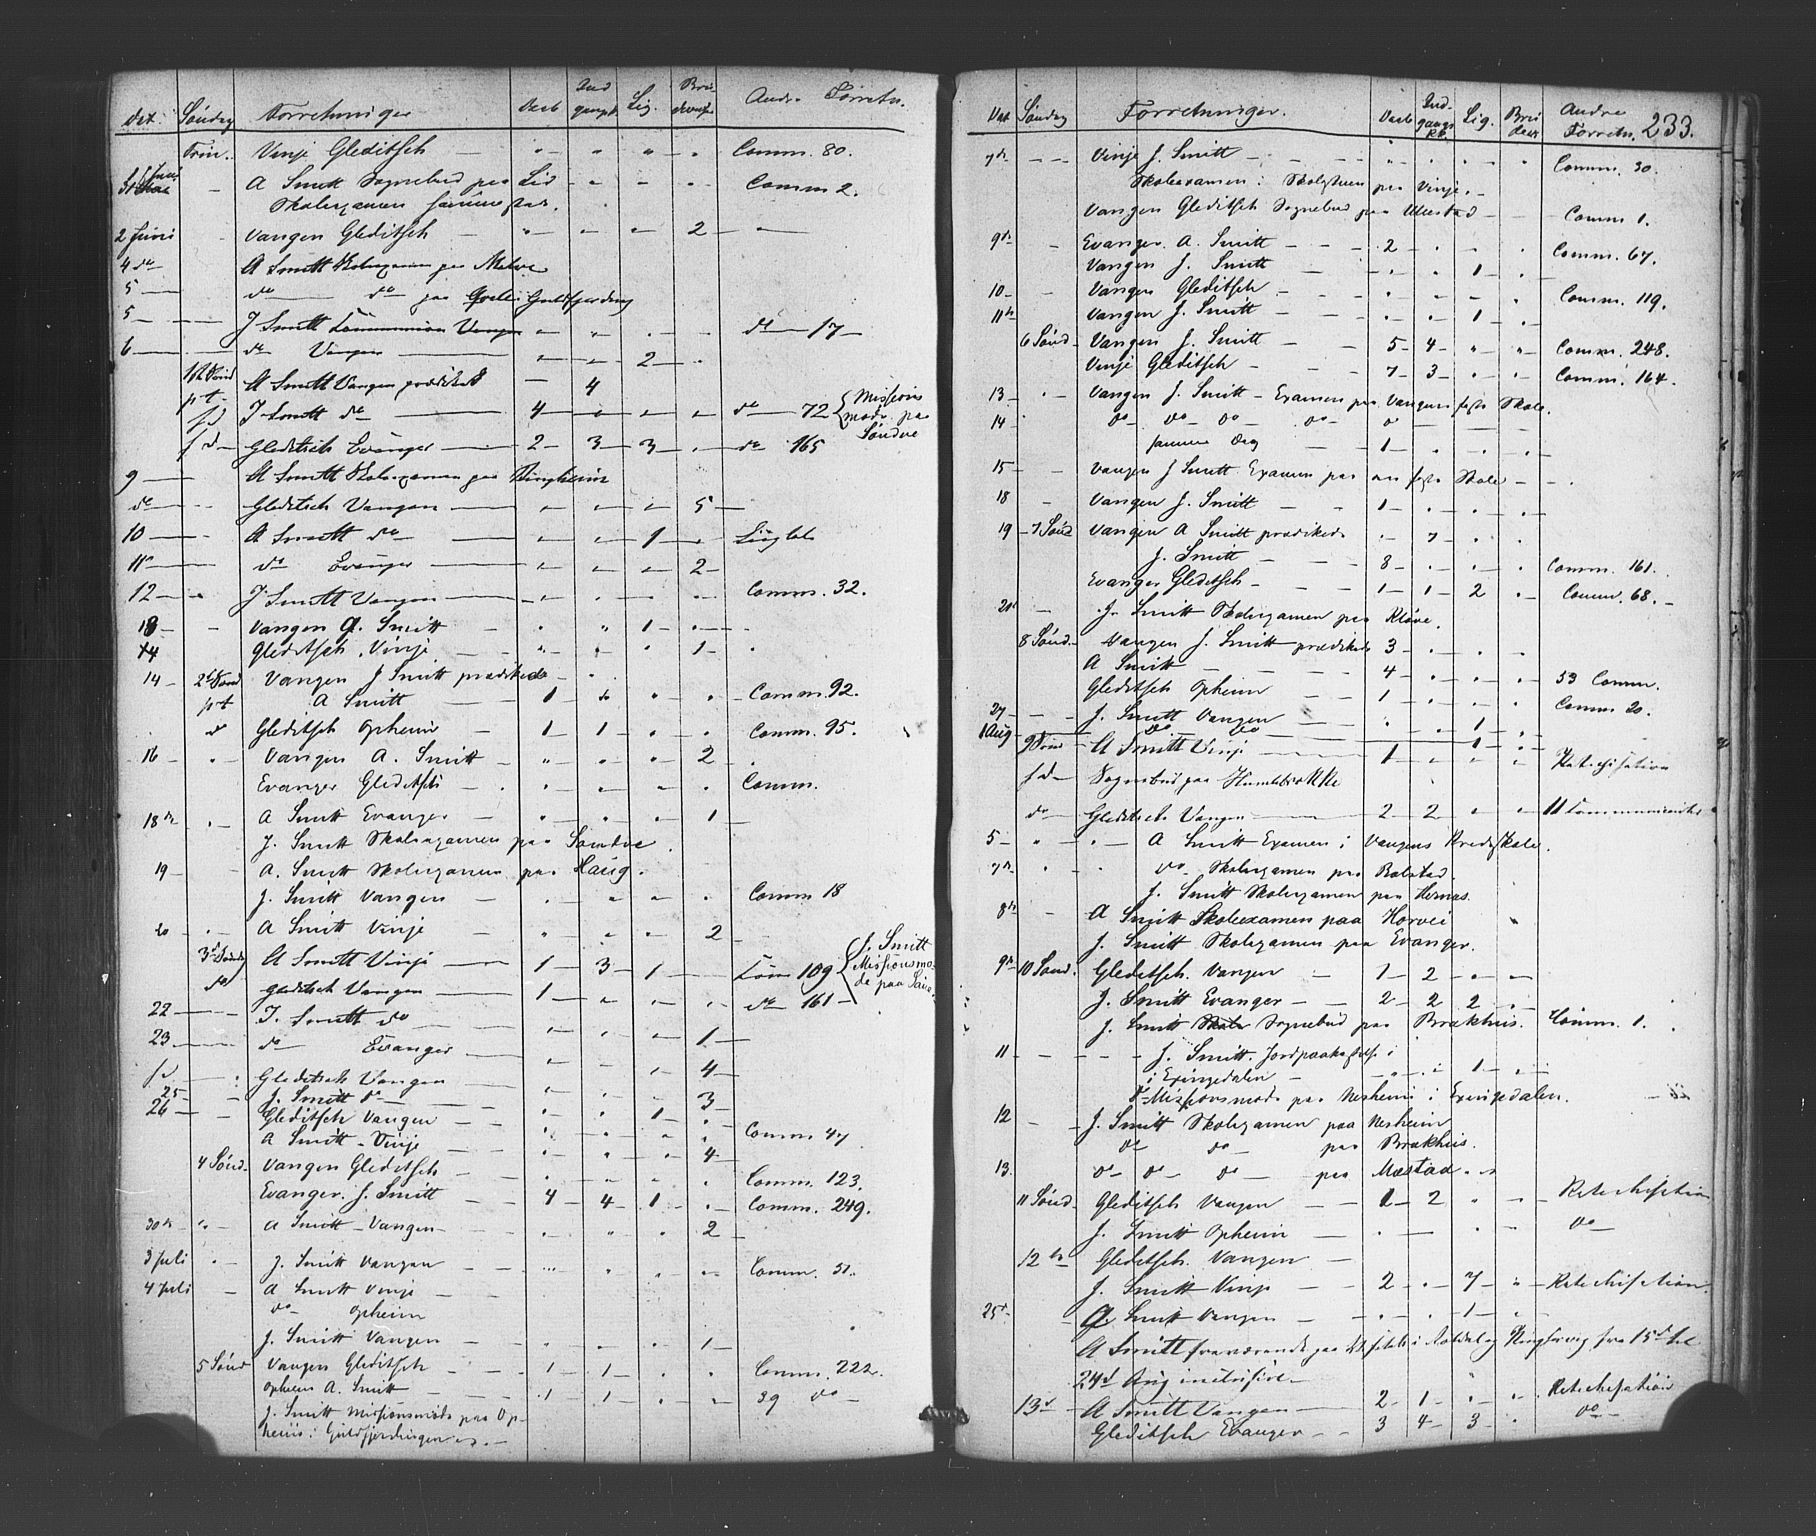 Dat. Søndag Forretninger Daab Ind gangk Lig. Bru devielse Andre Forretn.
Trin. Vinje Gleditsch " " " " Comm. 80.
A Smitt Sognebud paa Lid Comm 2.
Skolexamen samme sted.
2 Juni Vangen Gleditsch 2
4 do A Smitt Skolexamen paa
5 do do paa
5 J Smitt Communion Vangen do 17
6 do Vangen 2
1ste Sønd A Smitt Vangen prædiket 4
p t. J Smitt do 4 do 72 Missions møde paa
f d Gleditsch Evanger 2 3 3 do 165
9 A Smitt Skolexamen paa
do Gleditsch Vangen 5
10 A Smitt do 1
11 do Evanger 2
12 J Smitt Vangen Comm. 32.
13 Vangen A. Smitt 1
14 Gleditsch, Vinje 1
14 2de Sønd Vangen J Smitt prædikede
p t A Smitt 1 6 Comm. 92.
d Gleditsch Opheim 1 1 Comm. 95.
16 Vangen A. Smitt 2
Evanger Gleditsch Comm.
18de A Smitt Evanger 1
J. Smitt Skolexamen paa Sondve.
19 A. Smitt Skolexamen paa Haug.
J. Smitt Vangen Comm 18
20 A Smitt Vinje 2
3die Søndag A Smitt Vinje 1 3 1 Com 109 J. Smitt Missionsmø-
do Gleditsch Vangen 1 do 161 de paa
22 J. Smitt do
23 do Evanger 1
f d Gleditsch Vangen 4
25 J. Smitt do 3
26 Gleditsch Vangen 1
A Smitt - Vinje Comm 47
4 Sønd. Vangen Gleditsch 4
Comm. 123.
Evanger. J. Smitt 4 4 1 Comm. 249.
30te A Smitt - Vangen 2
3 Juli J. Smitt Vangen Comm. 51.
4 Juli A Smitt Vinje
do Opheim
J. Smitt Vangen 1
5 Sønd Vangen Gleditsch 1 1 Comm. 222.
Opheim A. Smitt 1 1 39 do
J. Smitt Missionsmøde paa Op-
heim i Guldfjerdingen
Dat Søndag Forretninger. Daab Ind-gangs Kk. Lig. Bru devi Andre Forretn. 233.
7de Vinje J. Smitt Comm. 30.
Skolexamen i Skolstuen paa Vinje.
Vangen Gleditsch Sognebud paa Ullestad Comm 1.
9de Evanger. A. Smitt 2 Comm. 67.
Vangen J. Smitt 1
10 Vangen Gleditsch Comm. 119.
11te Vangen J. Smitt 1
6 Sønd Vangen J. Smitt 5 4 Comm. 248.
Vinje Gleditsch 7 3 Comm. 164.
13 Vangen J. Smitt - Examen paa Vangens faste Skole.
14 do do do do d
samme dag 1
15 Vangen J Smitt Examen paa faste Skole
18 Vangen J. Smitt 1
19 7 Sønd Vangen A Smitt prædikede 7
J. Smitt 8 Comm. 161.
Evanger Gleditsch 1 1 2 Comm. 68.
J. Smitt Skolexamen paa Kløve.
8 Sønd. Vangen J. Smitt prædikede 3
A Smitt 4 53 Comm.
Gleditsch Opheim 1 Comm 20.
27 J. Smitt Vangen 1
1 Aug do do 1
9 Sønd A Smitt Vinje 1 Katechisation
f d Sognebud paa
do Gleditsch Vangen 2 2 11 Communicanter
5 A Smitt Examen i Vangens Kredsskole.
7de do Skolexamen paa Bolstad.
J. Smitt Skolexamen paa Hernæs.
8de A Smitt Skolexamen paa Horvei
J. Smitt Skolexamen paa Evanger.
9de 10 Sønd. Gleditsch. Vangen 1 2
J. Smitt Evanger 2 2 2
J. Smitt Sognebud paa Brækhus. Comm. 1.
11 J. Smitt. Jordpaakastelse i
i Exingedalen 1
do Missionsmøde paa Nesheim i Exingedalen.
12 J. Smitt Skolexamen paa Nesheim
do do paa Brækhus.
13. do do do paa Mæstad
11 Sønd Gleditsch Vangen 1 2 Katechisation
J. Smitt Opheim do
12te Gleditsch. Vangen
J. Smitt Vinje 2 7 Katechisation.
25de J Smitt Vangen 1
A Smitt fraværende paa i Røldal og Kingservig fra 15de til
24de Aug inclusive.
13de A Smitt Vangen 2 1 Katechisation
Gleditsch Evanger 3 4 3 do